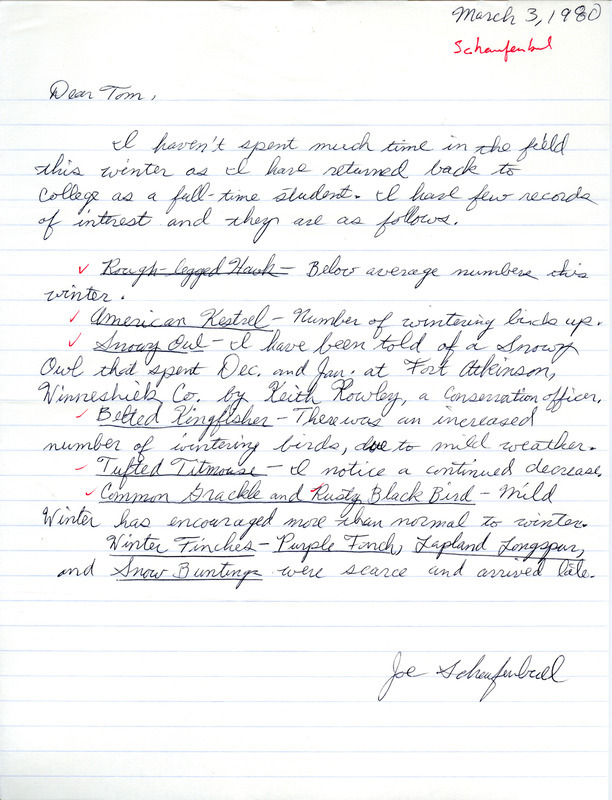 March 3, 1980
Schaufenbul
Dear Tom,
I haven't spent much time in the field
this winter as I have returned back to
College as a full-time student. I have few records
of interest and they are as follows.
Rough-legged Hawk - Below average numbers this
winter.
American Kestrel - Number of wintering birds up.
Snowy Owl - I have been told of a Snowy
Owl that spent Dec. and Jan. at Fort Atkinson,
Winneshiek Co. by Keith Rowley, a conservation officer.
Belted Kingfisher - There was an increased
number of wintering birds, due to mild weather.
Tufted Titmouse - I notice a continued decrease.
Common Grackle and Rusty Black Bird - Mild
Winter has encouraged more than normal to winter.
Winter Finches - Purple Finch, Lapland Longspur,
and Snow Buntings were scarce and arrived late.
Joe Schaufenbuel